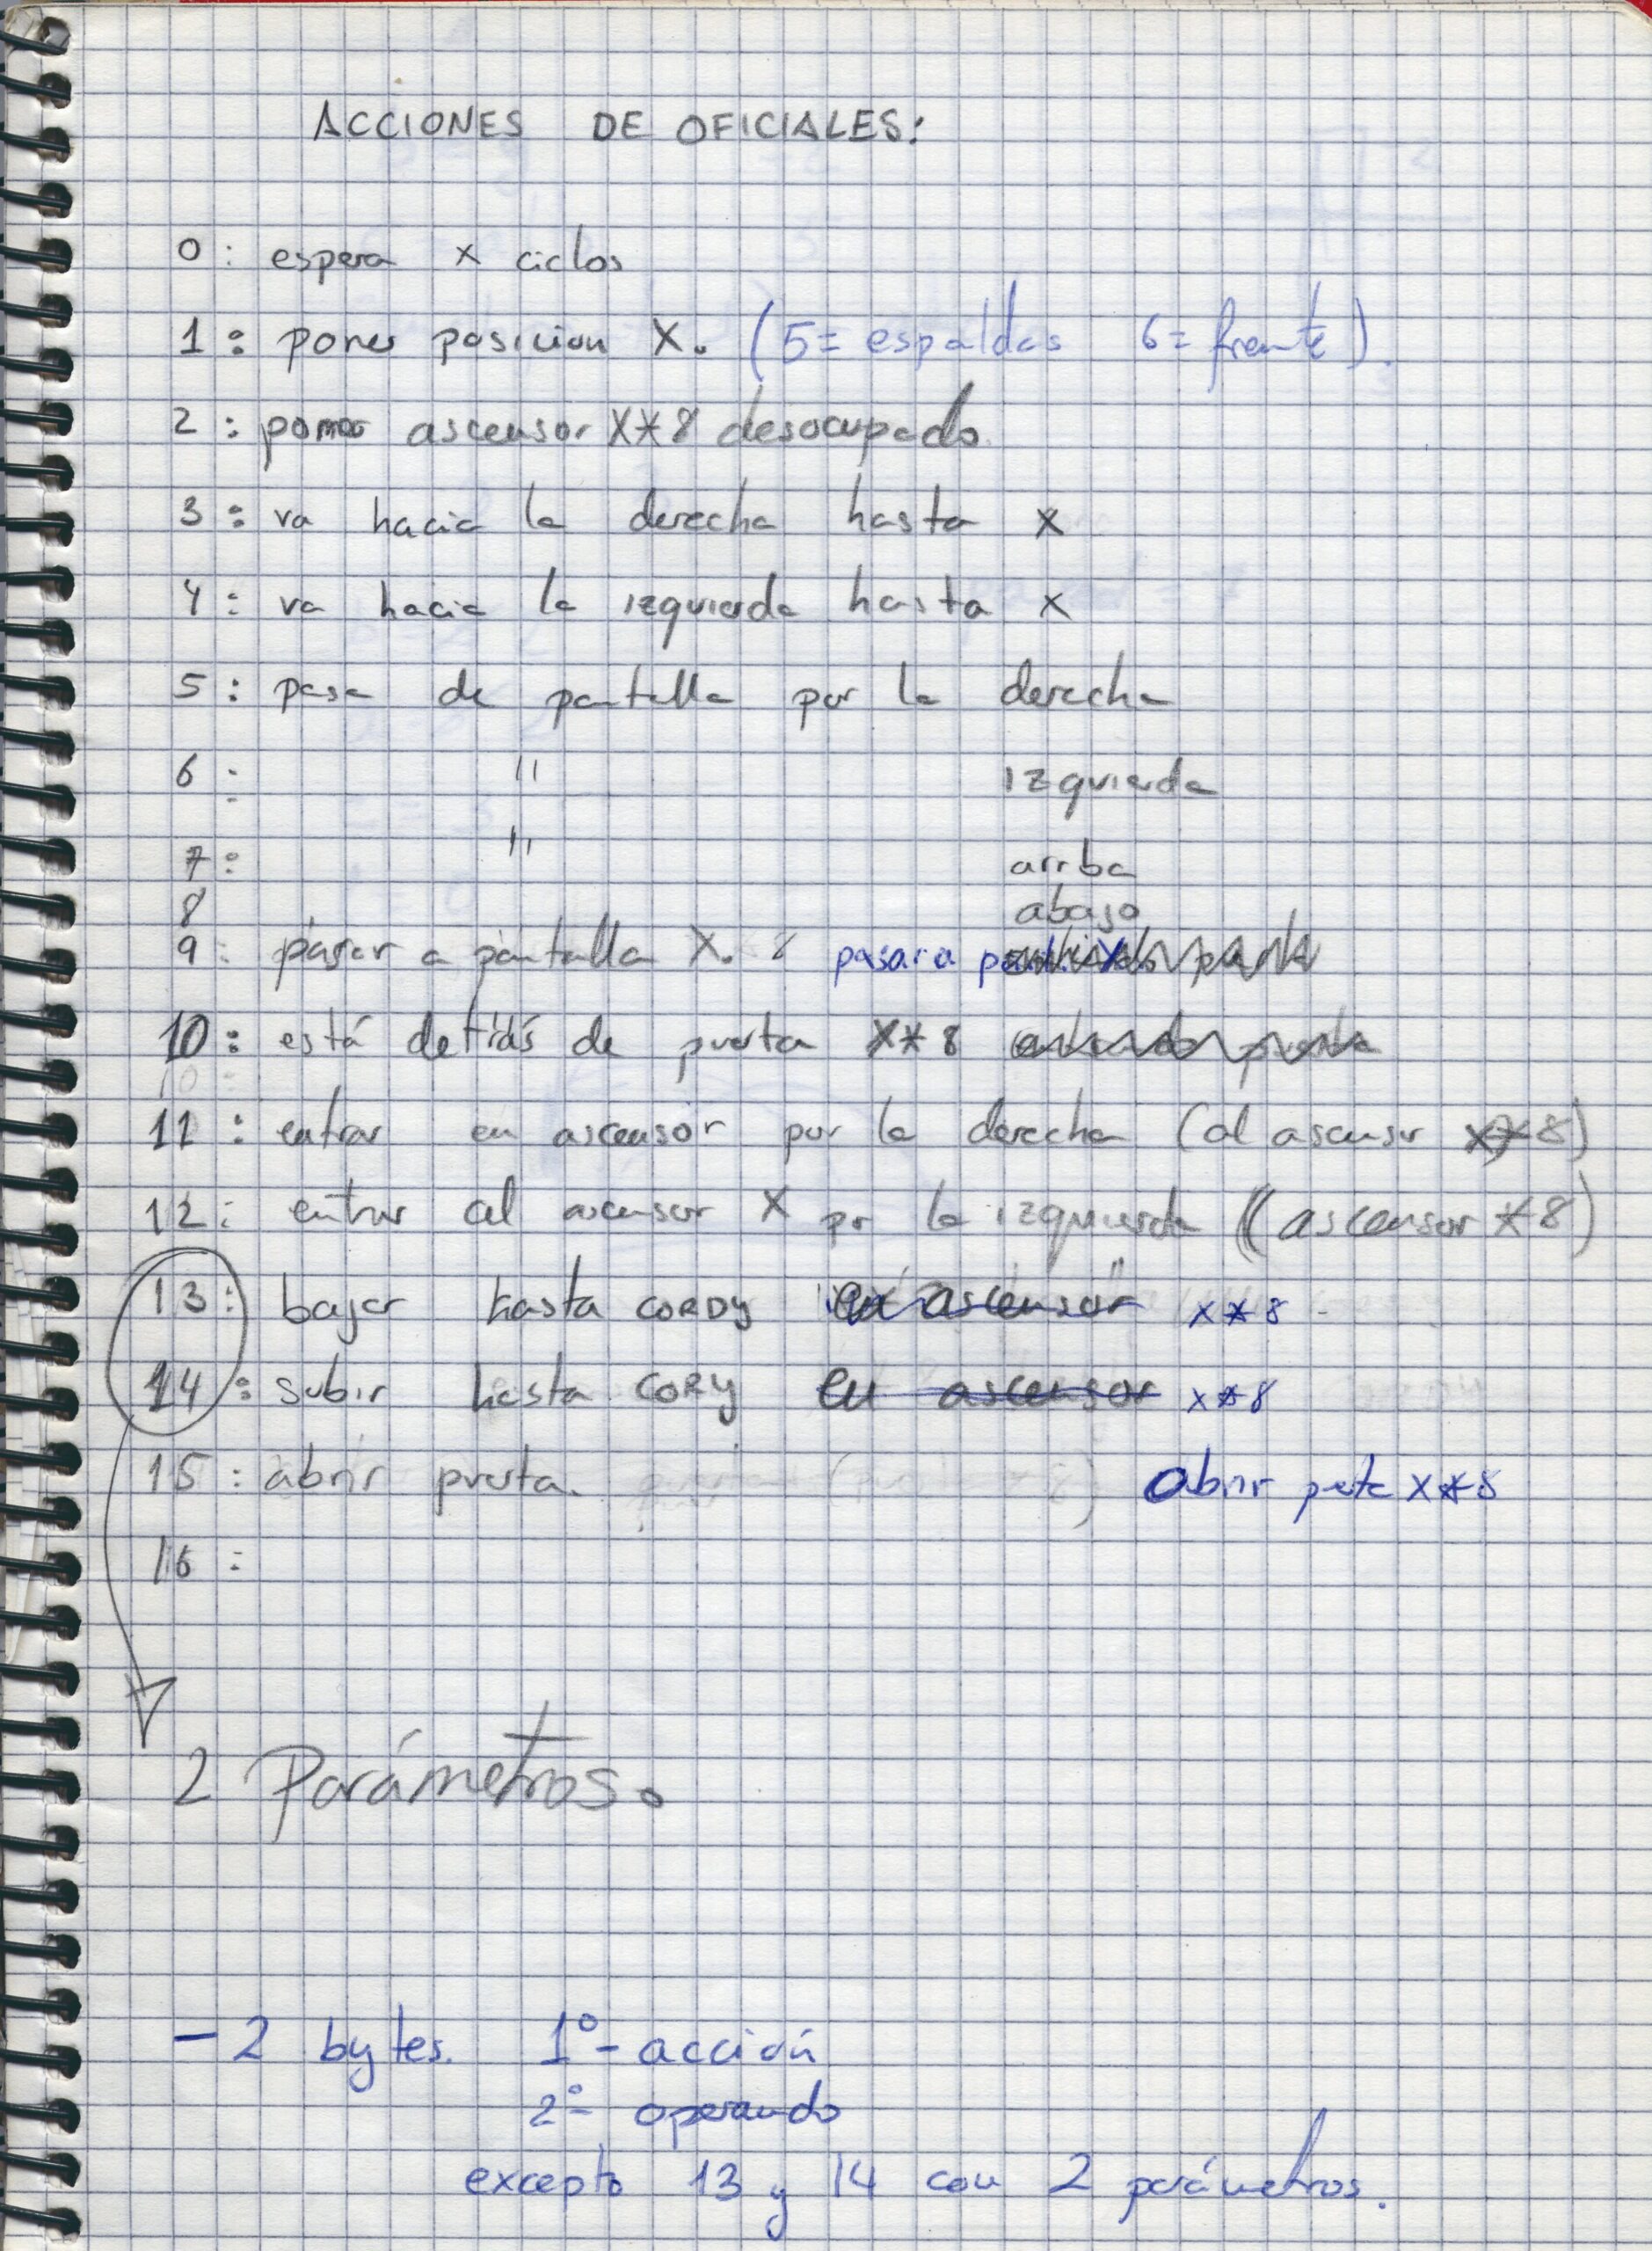 ACCIONES DE OFICIALES:
0: espera x ciclos
1: poner posicion X. (5= espaldas 6= frente).
2: poner ascensor X*8 desocupado.
3: va hacia la derecha hasta x
4: va hacia la izquierda hasta x
5: pasa de pantalla por la derecha
6: " izquierda
7: " arriba
8 abajo
9: pasar a pantalla X. pasar a X
10: está detrás de puerta X*8
11: entrar en ascensor por la derecha (al ascensor x*8)
12: entrar al ascensor X por la izquierda (ascensor *8)
13: bajar hasta CORDY en ascensor x*8
14: subir hasta CORY en ascensor x*8
15: abrir puerta. Abrir puerta x*8
16:
2 Parámetros.
- 2 bytes. 1º- acción
2º- operando
excepto 13 y 14 con 2 parámetros.